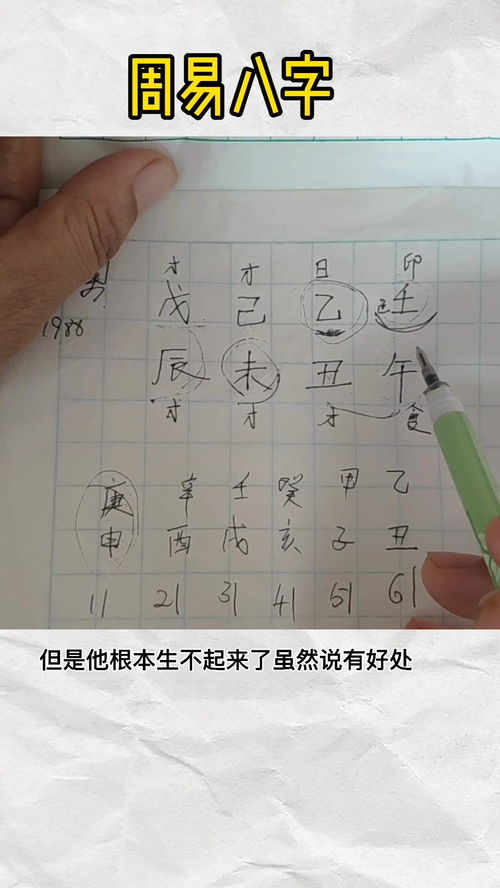 周易八字
才 才 日 印
男 戊 己 乙 壬
1988
辰 未 丑 午
才 才 才 食
庚 辛 壬 癸 甲 乙
申 酉 戌 亥 子 丑
11 21 31 41 51 61
但是他根本生不起来了虽然说有好处